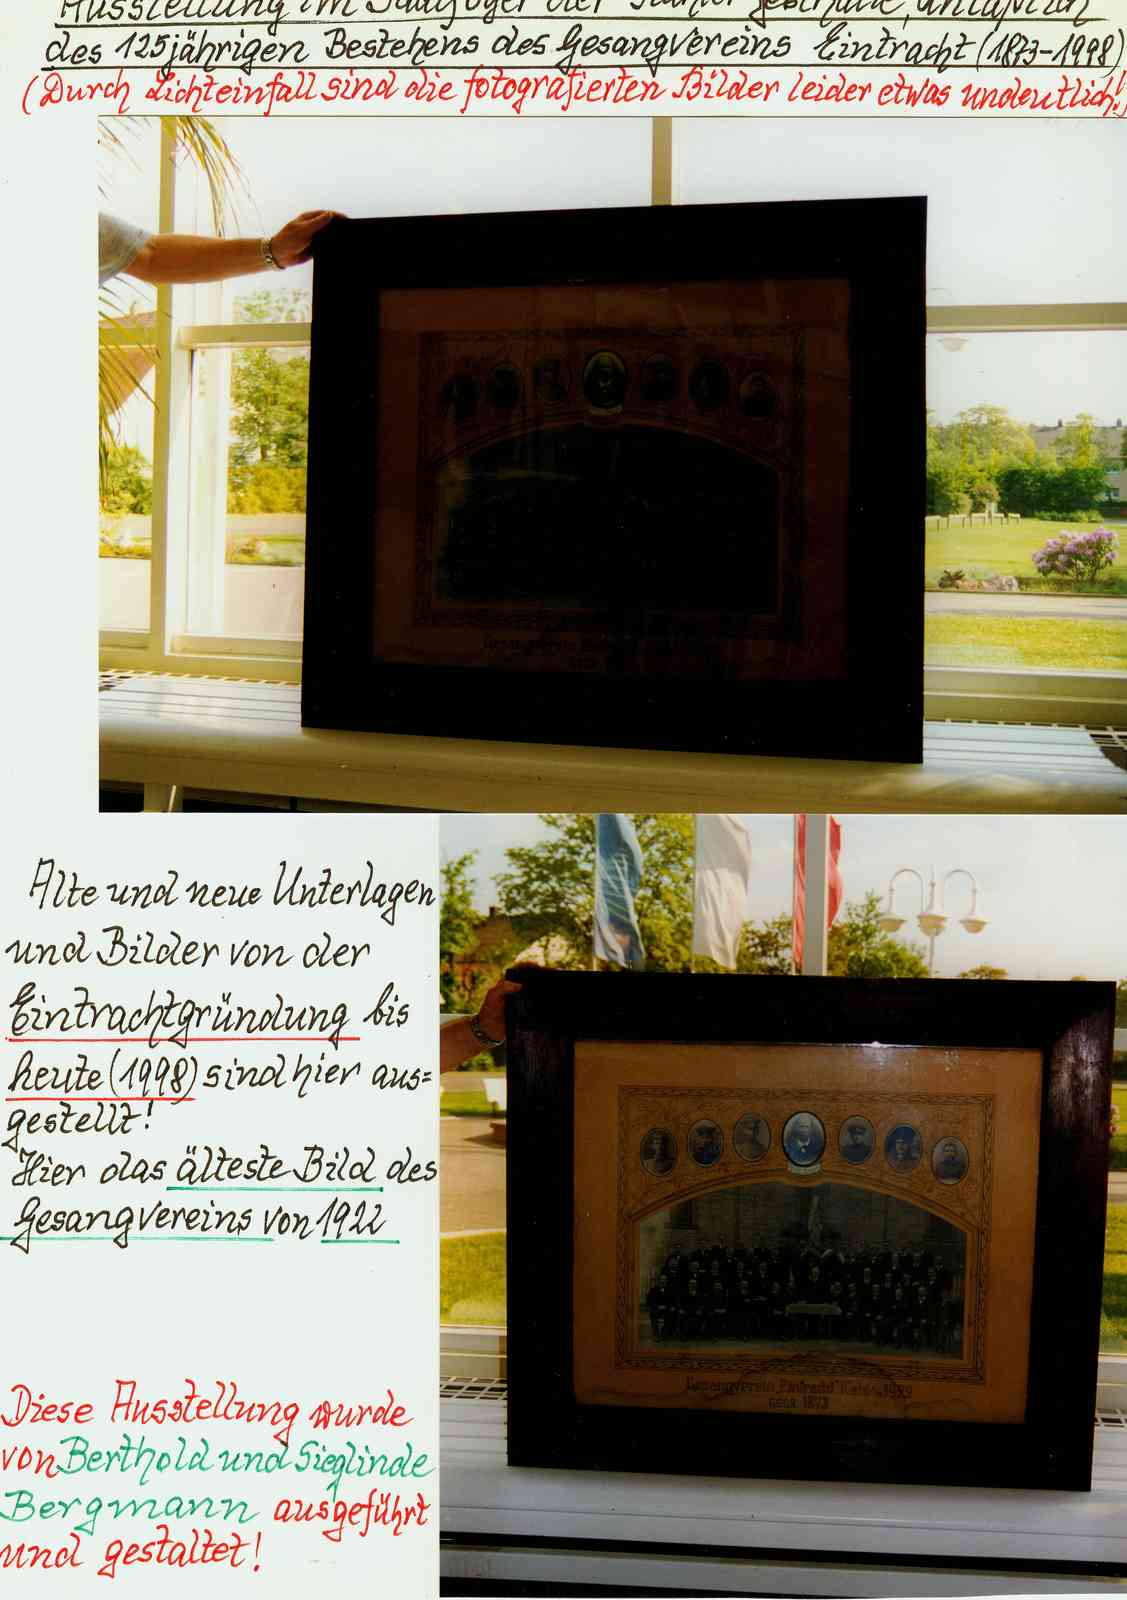 Ausstellung im der
des 125jährigen Bestehens des Gesangvereins Eintracht (1873-1998)
(Durch Lichteinfall sind die fotografierten Bilder leider etwas undeutlich!)
Gesangverein
Alte und neue Unterlagen
und Bilder von der
Eintrachtgründung bis
heute (1998) sind hier aus=
gestellt!
Hier das älteste Bild des
Gesangvereins von 1922
Gesangverein "Eintracht" 1922
gegr. 1873
Diese Ausstellung wurde
von Berthold und Sieglinde
Bergmann ausgeführt
und gestaltet!